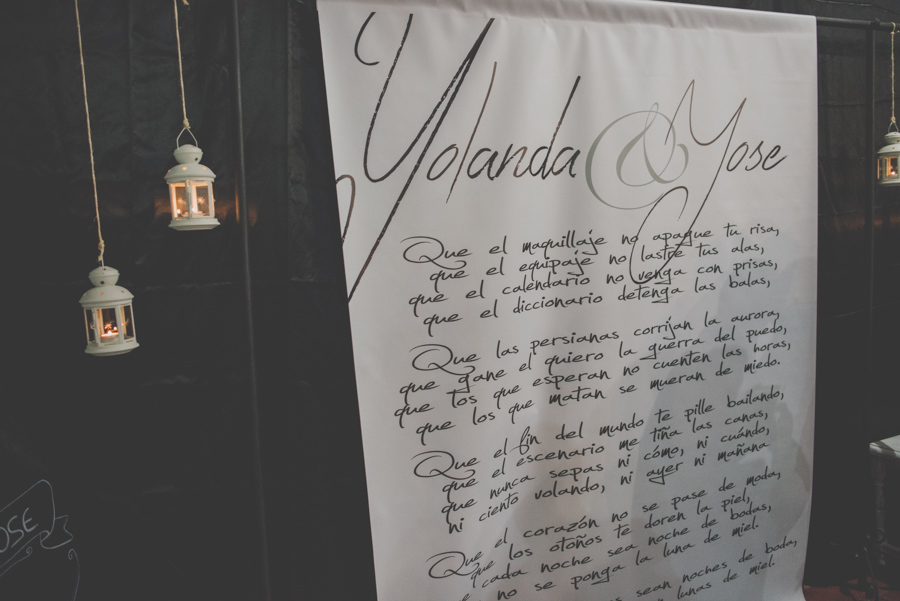 Yolanda & Yose
Que el maquillaje no apague tu risa,
que el equipaje no lastre tus alas,
que el calendario no venga con prisas,
que el diccionario detenga las balas,
Que las persianas corrijan la aurora,
que gane el quiero la guerra del puedo,
que los que esperan no cuenten las horas,
que los que matan se mueran de miedo.
Que el fin del mundo te pille bailando,
que el escenario me tiña las canas,
que nunca sepas ni cómo, ni cuándo,
ni ciento volando, ni ayer ni mañana
Que el corazón no se pase de moda,
que los otoños te doren la piel,
cada noche sea noche de bodas,
no se ponga la luna de miel.
sean noches de boda,
lunas de miel.
OSE